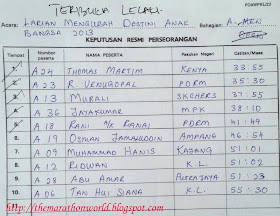 TERBUKA LELAKI.
FORM/PRL/03
Acara: LARIAN MENGUBAH DESTINI ANAK Bahagian: A - MEN
BANGSA 2013 OPEN
KEPUTUSAN RESMI PERSEORANGAN
Tempat Nombor peserta NAMA PESERTA Pasukan Negeri Catitan/Masa
1. A24 THOMAS MARTIM KENYA 33:55
2. A23 R. VENUGOPAL PDRM 35:30
3. A13 MURALI SKCHERS 37:55
4. A36 JAYAKUMAR MPK 38:10
5. A18 RANI A/K RANAI PDRM 41:49
6. A19 OSMAN JAMALUDDIN AMPANG 46:54
7. A09 MUHAMMAD HANIS KAJANG 51:01
8. A12 RIDWAN K.L. 51:02
9. A28 ABU AMAR PUTRAJAYA 51:23
10. A06 TAN HUI SIANG K.L. 55:30
http://themarathonworld.blogspot.com